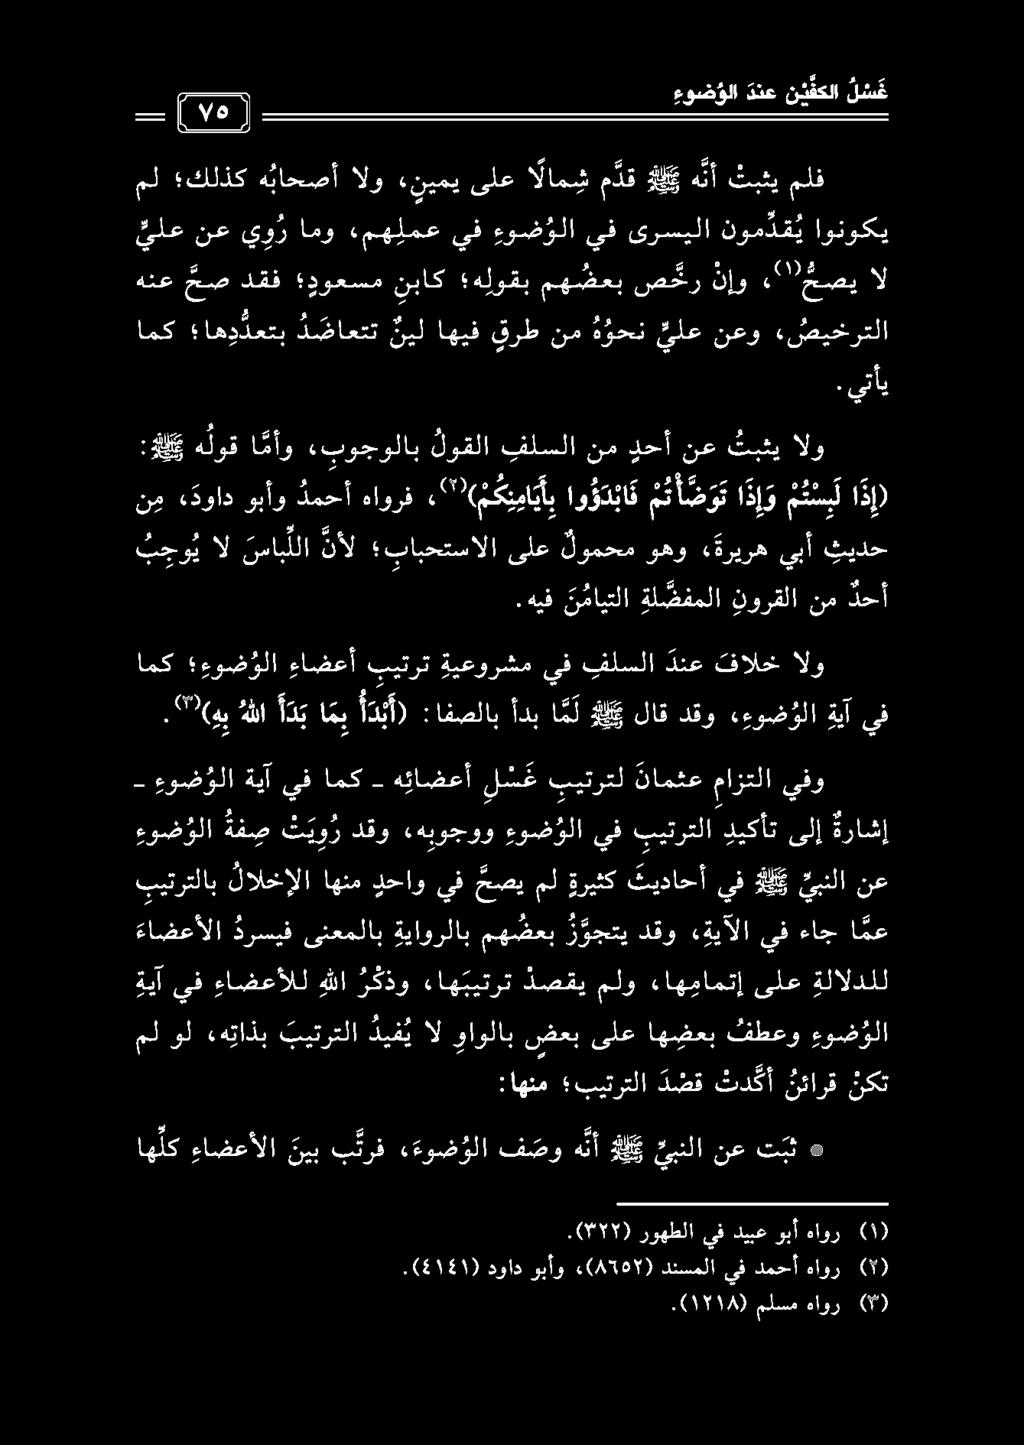 غَسْلُ الكفَّيْنِ عندَ الوُضوءِ
٧٥
فلم يثبتْ أنَّه ﷺ قدَّم شِمالًا على يمينٍ، ولا أصحابُه كذلك؛ لم
يكونوا يُقدِّمون اليسرى في الوُضوءِ في عملِهم، وما رُوِي عن عليٍّ
لا يصحُّ(١)، وإنْ رخَّص بعضُهم بقولِه؛ كابنِ مسعودٍ؛ فقد صحَّ عنه
الترخيصُ، وعن عليٍّ نحوُهُ من طرقٍ فيها لينٌ تتعاضَدُ بتعدُّدِها؛ كما
يأتي.
ولا يثبتُ عن أحدٍ من السلفِ القولُ بالوجوبِ، وأمَّا قولُه ﷺ:
(إِذَا لَبِسْتُمْ وَإِذَا تَوَضَّأْتُمْ فَابْدَؤُوا بِأَيَامِنِكُمْ)(٢)، فرواه أحمدُ وأبو داودَ، مِن
حديثِ أبي هريرةَ، وهو محمولٌ على الاستحبابِ؛ لأنَّ اللِّباسَ لا يُوجِبُ
أحدٌ من القرونِ المفضَّلةِ التيامُنَ فيه.
ولا خلافَ عندَ السلفِ في مشروعيةِ ترتيبِ أعضاءِ الوُضوءِ؛ كما
في آيةِ الوُضوءِ، وقد قال ﷺ لَمَّا بدأ بالصفا: (أَبْدَأُ بِمَا بَدَأَ اللهُ بِهِ)(٣).
وفي التزامِ عثمانَ لترتيبِ غَسْلِ أعضائِه ـ كما في آية الوُضوءِ ـ
إشارةٌ إلى تأكيدِ الترتيبِ في الوُضوءِ ووجوبِه، وقد رُوِيَتْ صِفةُ الوُضوءِ
عن النبيِّ ﷺ في أحاديثَ كثيرةٍ لم يصحَّ في واحدٍ منها الإخلالُ بالترتيبِ
عمَّا جاء في الآيةِ، وقد يتجوَّزُ بعضُهم بالروايةِ بالمعنى فيسردُ الأعضاءَ
للدلالةِ على إتمامِها، ولم يقصدْ ترتيبَها، وذكْرُ اللهِ للأعضاءِ في آيةِ
الوُضوءِ وعطفُ بعضِها على بعضٍ بالواوِ لا يُفيدُ الترتيبَ بذاتِه، لو لم
تكنْ قرائنُ أكَّدتْ قصْدَ الترتيب؛ منها:
● ثبَت عن النبيِّ ﷺ أنَّه وصَف الوُضوءَ، فرتَّب بينَ الأعضاءِ كلِّها
(١) رواه أبو عبيد في الطهور (٣٢٢).
(٢) رواه أحمد في المسند (٨٦٥٢)، وأبو داود (٤١٤١).
(٣) رواه مسلم (١٢١٨).